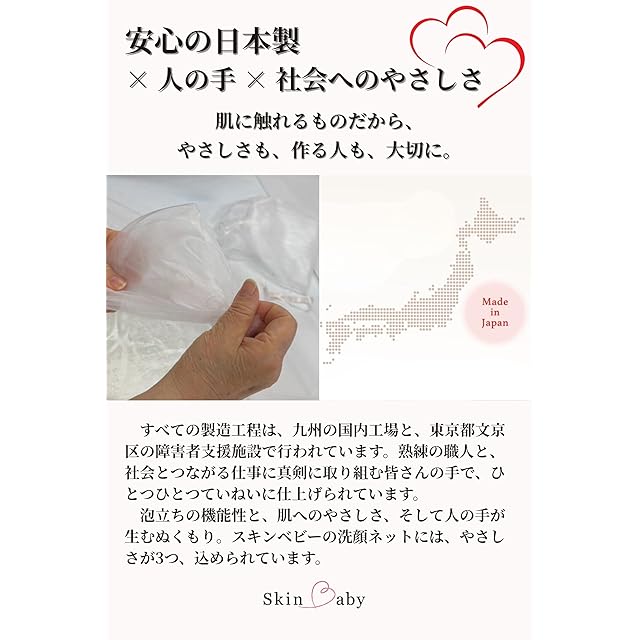 安心の日本製
× 人の手 × 社会へのやさしさ
肌に触れるものだから、
やさしさも、作る人も、大切に。
Made
in
Japan
すべての製造工程は、九州の国内工場と、東京都文京
区の障害者支援施設で行われています。熟練の職人と、
社会とつながる仕事に真剣に取り組む皆さんの手で、ひ
とつひとつていねいに仕上げられています。
泡立ちの機能性と、肌へのやさしさ、そして人の手が
生むぬくもり。スキンベビーの洗顔ネットには、やさし
さが3つ、込められています。
Skin Baby